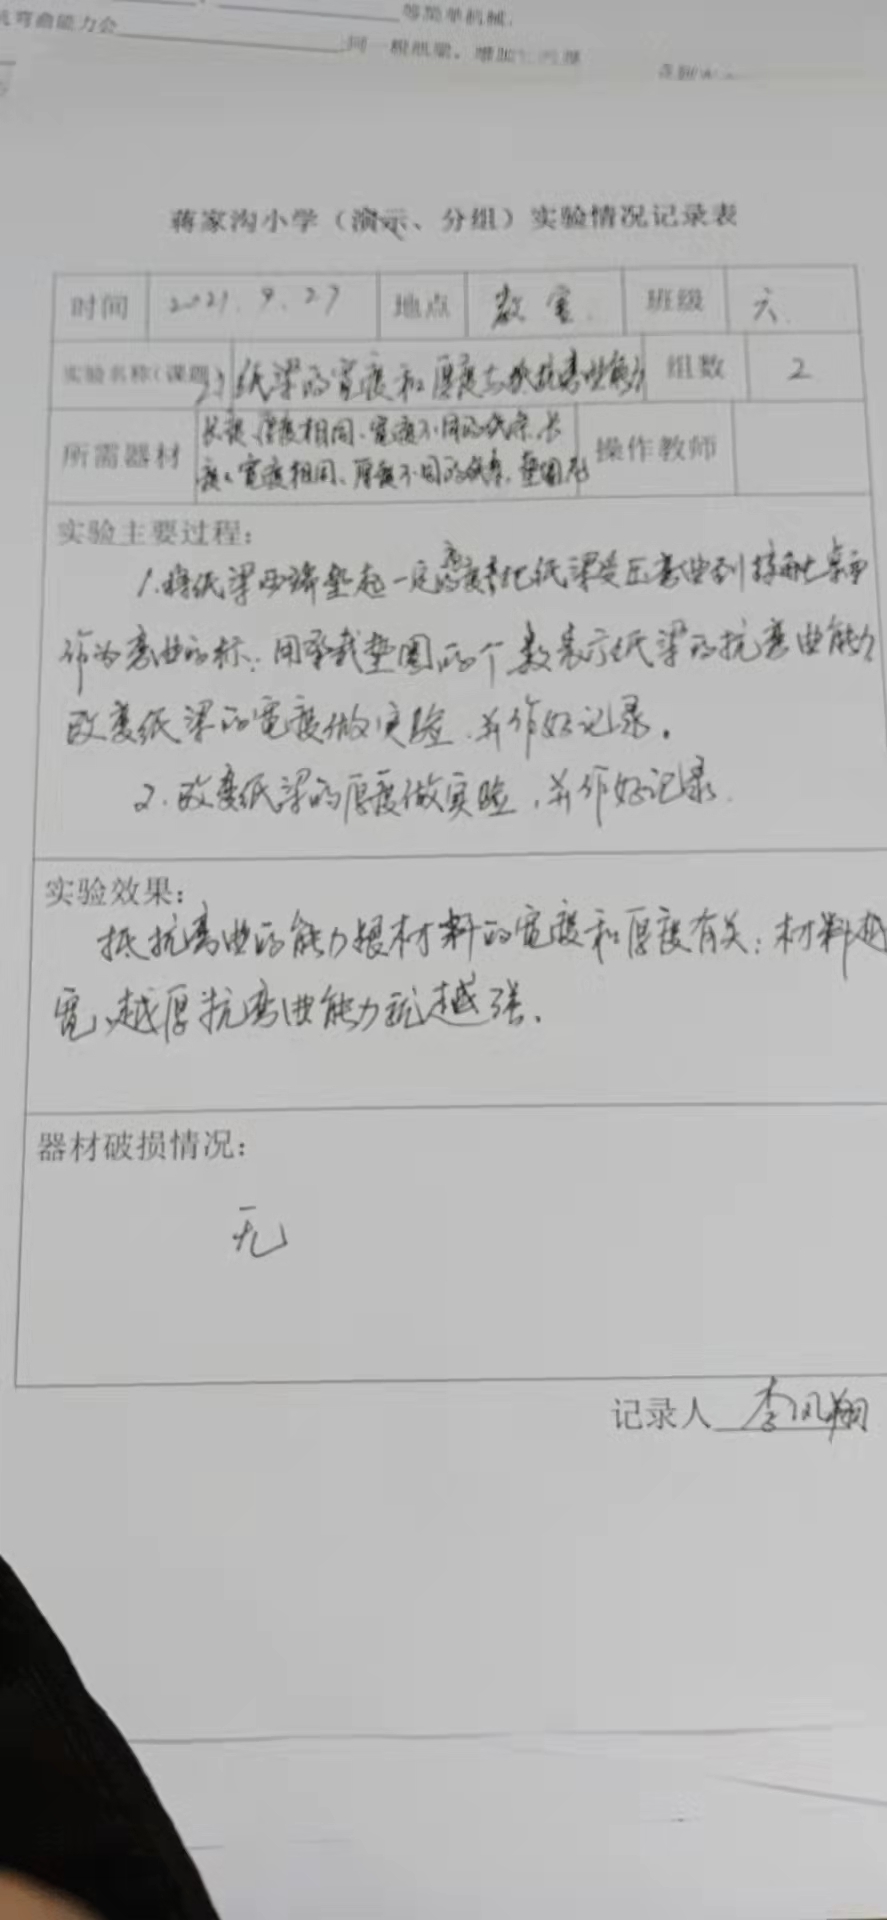 等简单机械。
弯曲能力会
同一根纸梁，增加
蒋家沟小学（演示、分组）实验情况记录表
时间 2021.9.27 地点 教室. 班级 六.
实验名称（课题） 纸梁的宽度和厚度与抵抗弯曲能力 组数 2
所需器材 长度、厚度相同、宽度不同的纸条、长 操作教师
度、宽度相同、厚度不同的纸条、垫圈
实验主要过程：
1.将纸梁两端垫起一定高度把纸梁受压弯曲到接触桌面
作为弯曲的标. 用承载垫圈的个数表示纸梁的抗弯曲能力
改变纸梁的宽度做实验、并作好记录。
2.改变纸梁的厚度做实验，并作好记录.
实验效果：
抵抗弯曲的能力跟材料的宽度和厚度有关：材料越
宽、越厚抗弯曲能力就越强、
器材破损情况：
无
记录人 李凤翔